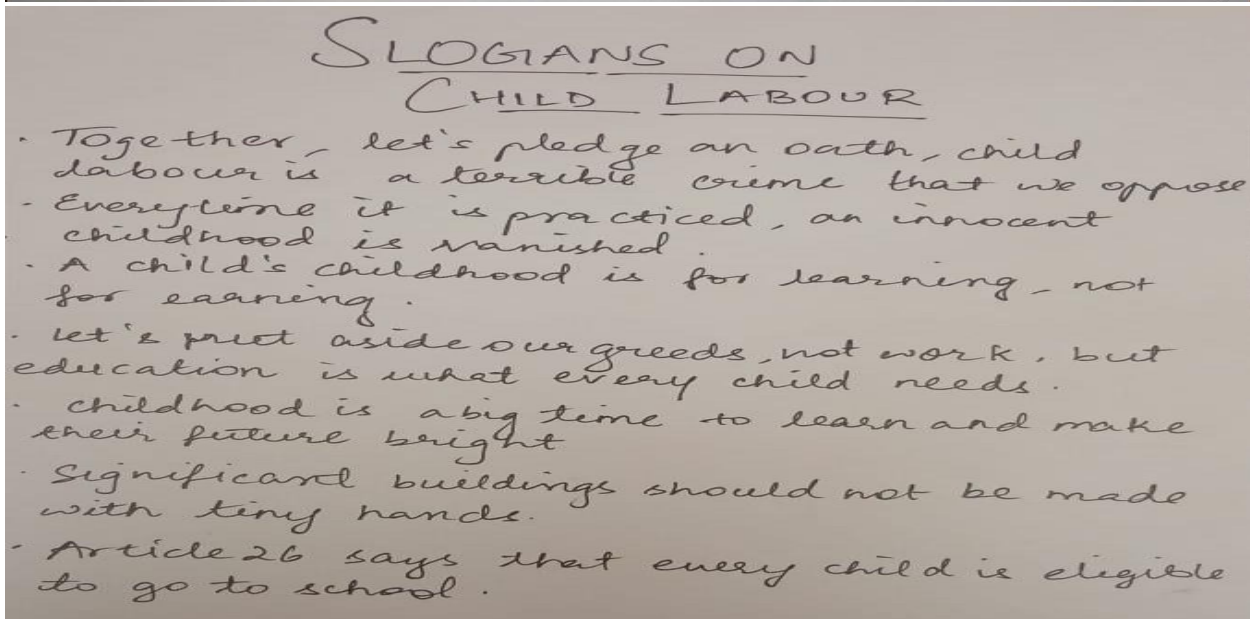 SLOGANS ON
CHILD LABOUR
· Together, let's pledge an oath, child
labour is a terrible crime that we oppose
- Everytime it is practiced, an innocent
childhood is vanished.
· A child's childhood is for learning, not
for earning.
· let's put aside our greeds, not work, but
education is what every child needs.
· childhood is a big time to learn and make
their future bright
· Significant buildings should not be made
with tiny hands.
- Article 26 says that every child is eligible
to go to school.